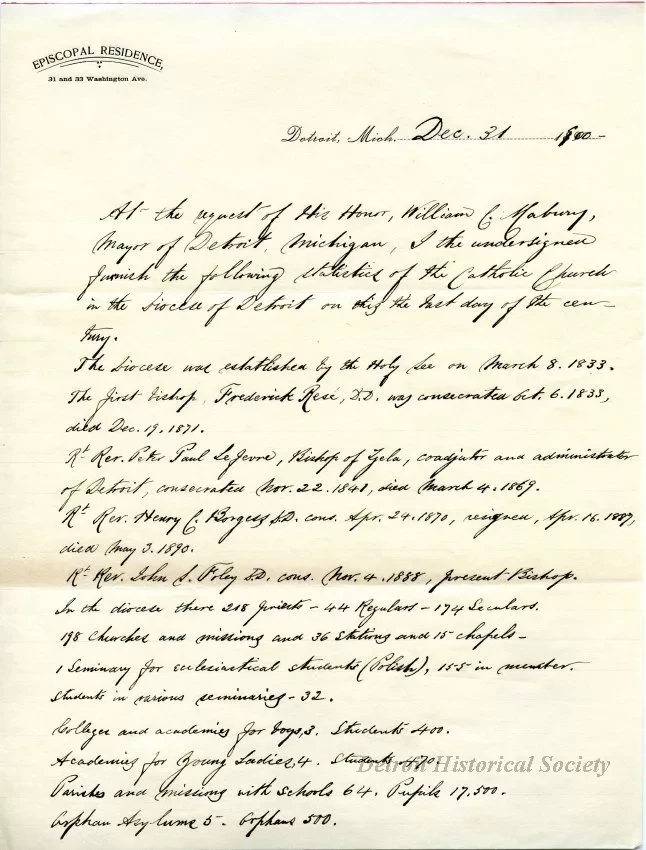 EPISCOPAL RESIDENCE,
31 and 33 Washington Ave.
Detroit, Mich. Dec. 31 1900-
At the request of His Honor, William C. Mabury,
Mayor of Detroit, Michigan, I the undersigned
furnish the following statistics of the Catholic Church
in the Diocese of Detroit on this the last day of the cen-
tury.
The Diocese was established by the Holy See on March 8. 1833.
The first bishop, Frederick Resé, D.D. was consecrated Oct. 6. 1833,
died Dec. 19. 1871.
Rt Rev. Peter Paul Lefevre, Bishop of Zela, coadjutor and administrator
of Detroit, consecrated Nov. 22. 1841, died March 4. 1869.
Rt Rev. Henry C. Borgess D.D. cons. Apr. 24. 1870, resigned, Apr. 16. 1887,
died May 3. 1890.
Rt Rev. John S. Foley D.D. cons. Nov. 4. 1888, present Bishop.
In the diocese there 218 priests - 44 Regulars - 174 Seculars.
198 Churches and missions and 36 Stations and 15 chapels-
1 Seminary for ecclesiastical students (Polish), 155 in number.
Students in various seminaries - 32.
Colleges and academies for boys, 3. Students 400.
Academies for Young Ladies, 4. Students 470.
Parishes and missions with schools 64. Pupils 17,500.
Orphan Asylums 5- Orphans 500.
Detroit Historical Society